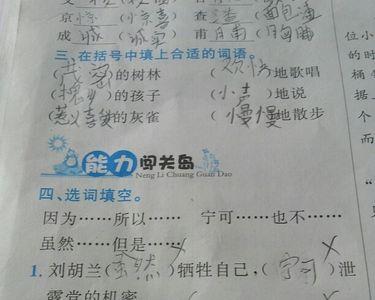 京(惊)(惊喜) 查(渣)(面包渣)
成(诚)(诚实) 甫(胸脯)
三、在括号中填上合适的词语。
(茂密)的树林 (欢快)地歌唱
()的孩子 (小声)地说
(惹人喜爱)的灰雀 (慢慢)地散步
能力闯关岛
Neng Li Chuang Guan Dao
四、选词填空。
因为……所以…… 宁可……也不……
虽然……但是……
1. 刘胡兰(虽然)牺牲自己,(宁可)泄
露党的机密
位小
的时
桶
个
面